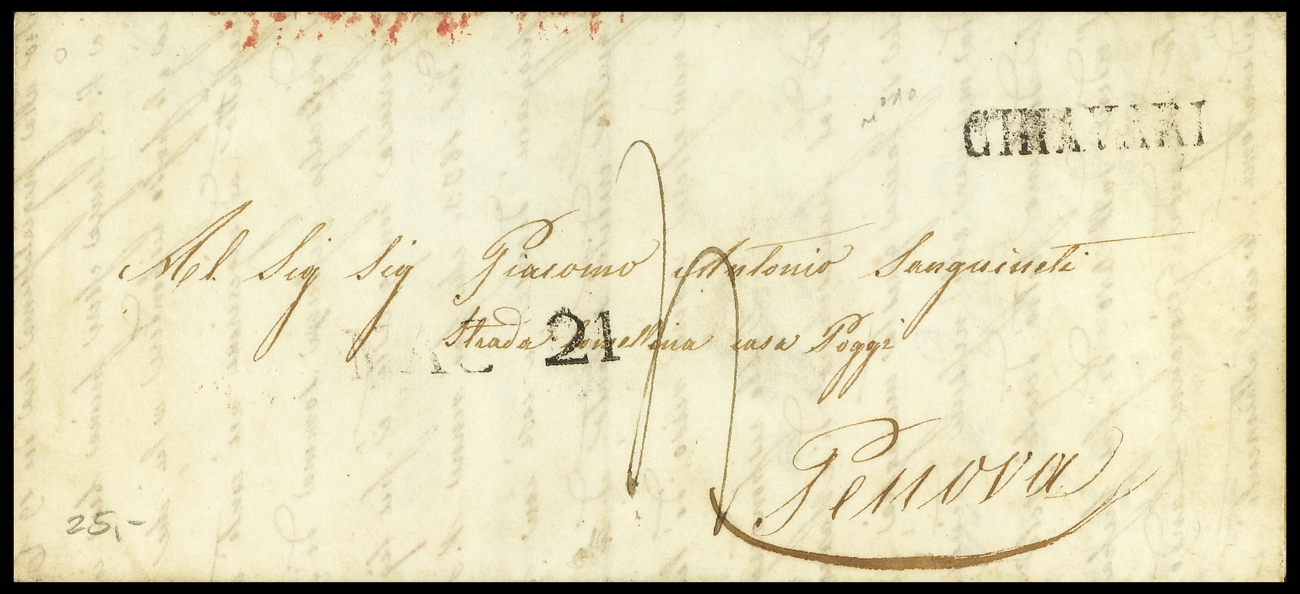 CHIAVARI
Al Sig Sig Giacomo Antonio Sanguineti
Strada Lomellina casa Poggi
MAG 21
Genova
25,-